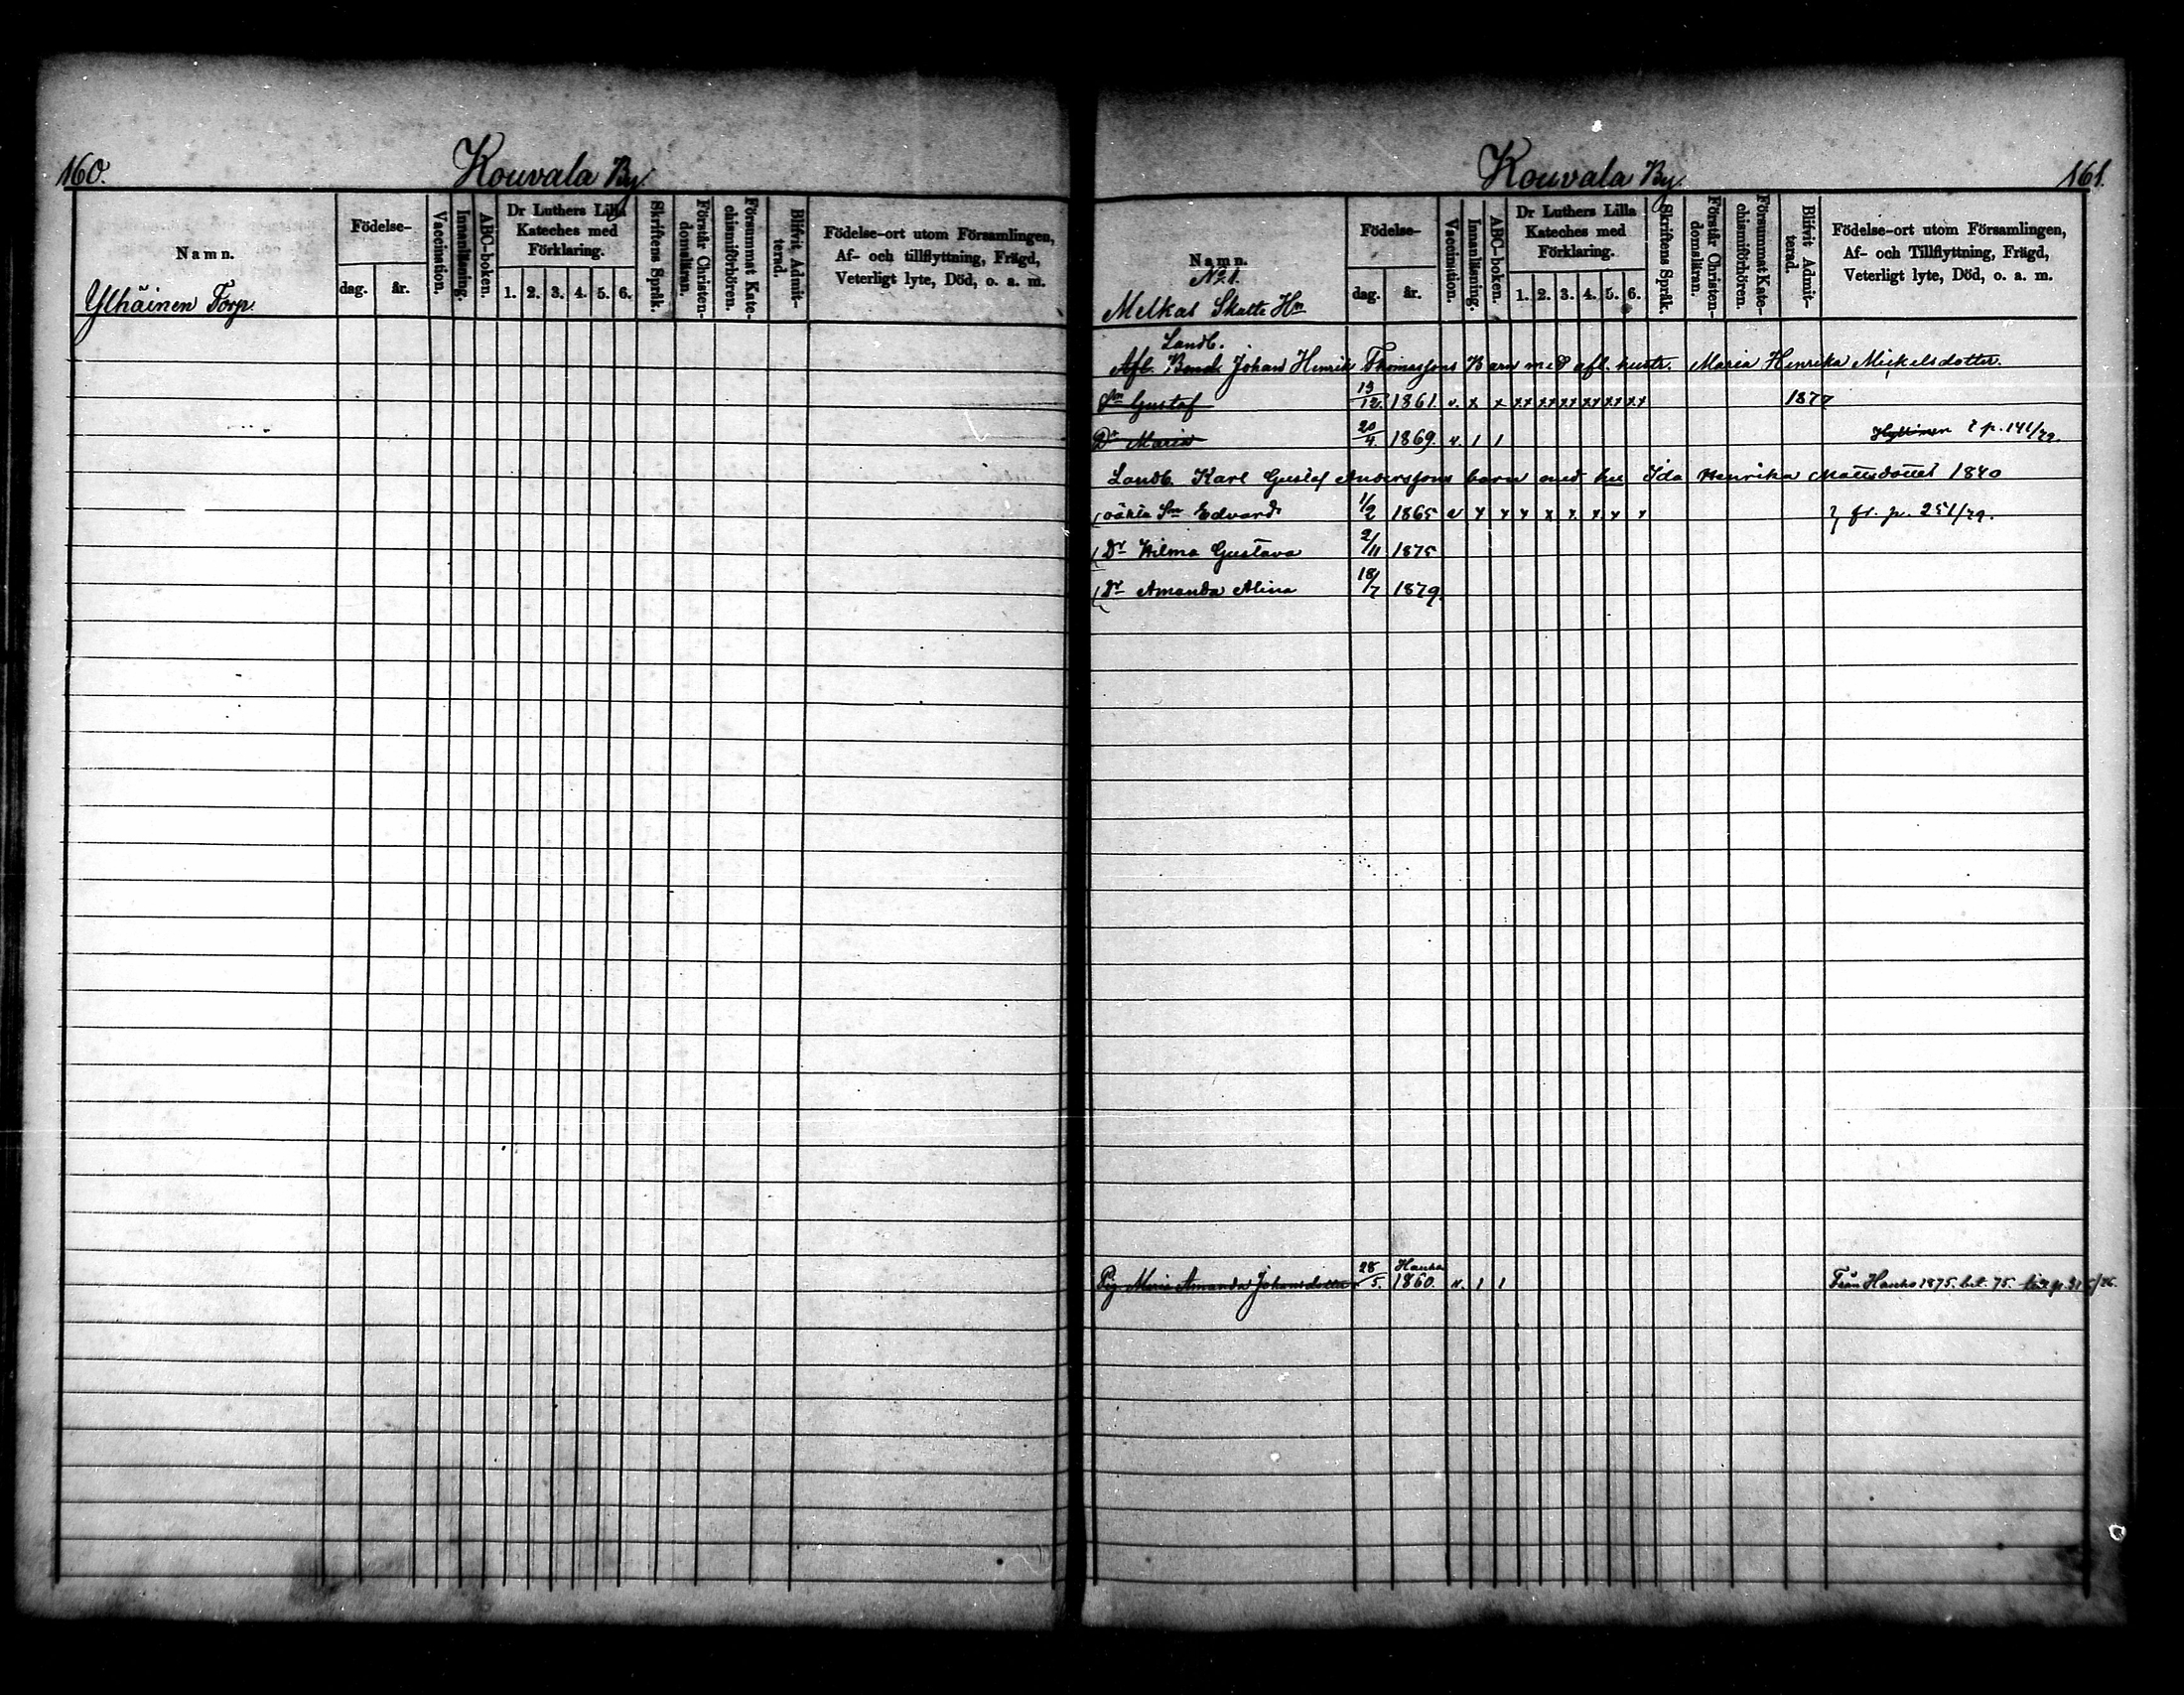 160.
Kouvala By.
Namn.
Födelse-
dag. år.
Vaccination.
Innanläsning.
ABC-boken.
Dr Luthers Lilla Kateches med Förklaring.
1. 2. 3. 4. 5. 6.
Skriftens Språk.
Förstår Christen-domsläran.
Försummat Kate-chismiförhören.
Blifvit Admit-terad.
Födelse-ort utom Församlingen,
Af- och tillflyttning, Frägd,
Veterligt lyte, Död, o. a. m.
Ylhäinen Torp.
Kouvala By.
161.
Namn.
No 1.
Melkas Skatte Hn
Födelse-
dag. år.
Vaccination.
Innanläsning.
ABC-boken.
Dr Luthers Lilla Kateches med Förklaring.
1. 2. 3. 4. 5. 6.
Skriftens Språk.
Förstår Christen-domsläran.
Försummat Kate-chismiförhören.
Blifvit Admit-terad.
Födelse-ort utom Församlingen,
Af- och Tillflyttning, Frägd,
Veterligt lyte, Död, o. a. m.
Landb.
Afl. Bond. Johan Henrik Thomassons Barn med afl. hustr. Maria Henrika Mickelsdotter.
Sn Gustaf 13/12. 1861. v. x x xx xx xx xx xx xx 1877
Dr Maria 20/4. 1869. v. 1 1 p. 141/79.
Landb. Karl Gustaf Anderssons barn med hu Ida Henrika Mattsdotter 1840
Sn Edvard 1/2 1865 v x x x x x x x x fr. p. 251/79.
Dr Wilma Gustava 2/11 1875
Dr Amanda Alina 18/7 1879.
Pig. Maria Amanda Johansdotter 28/5. Hauho 1860. v. 1 1 Från Hauho 1875. bet. 75.